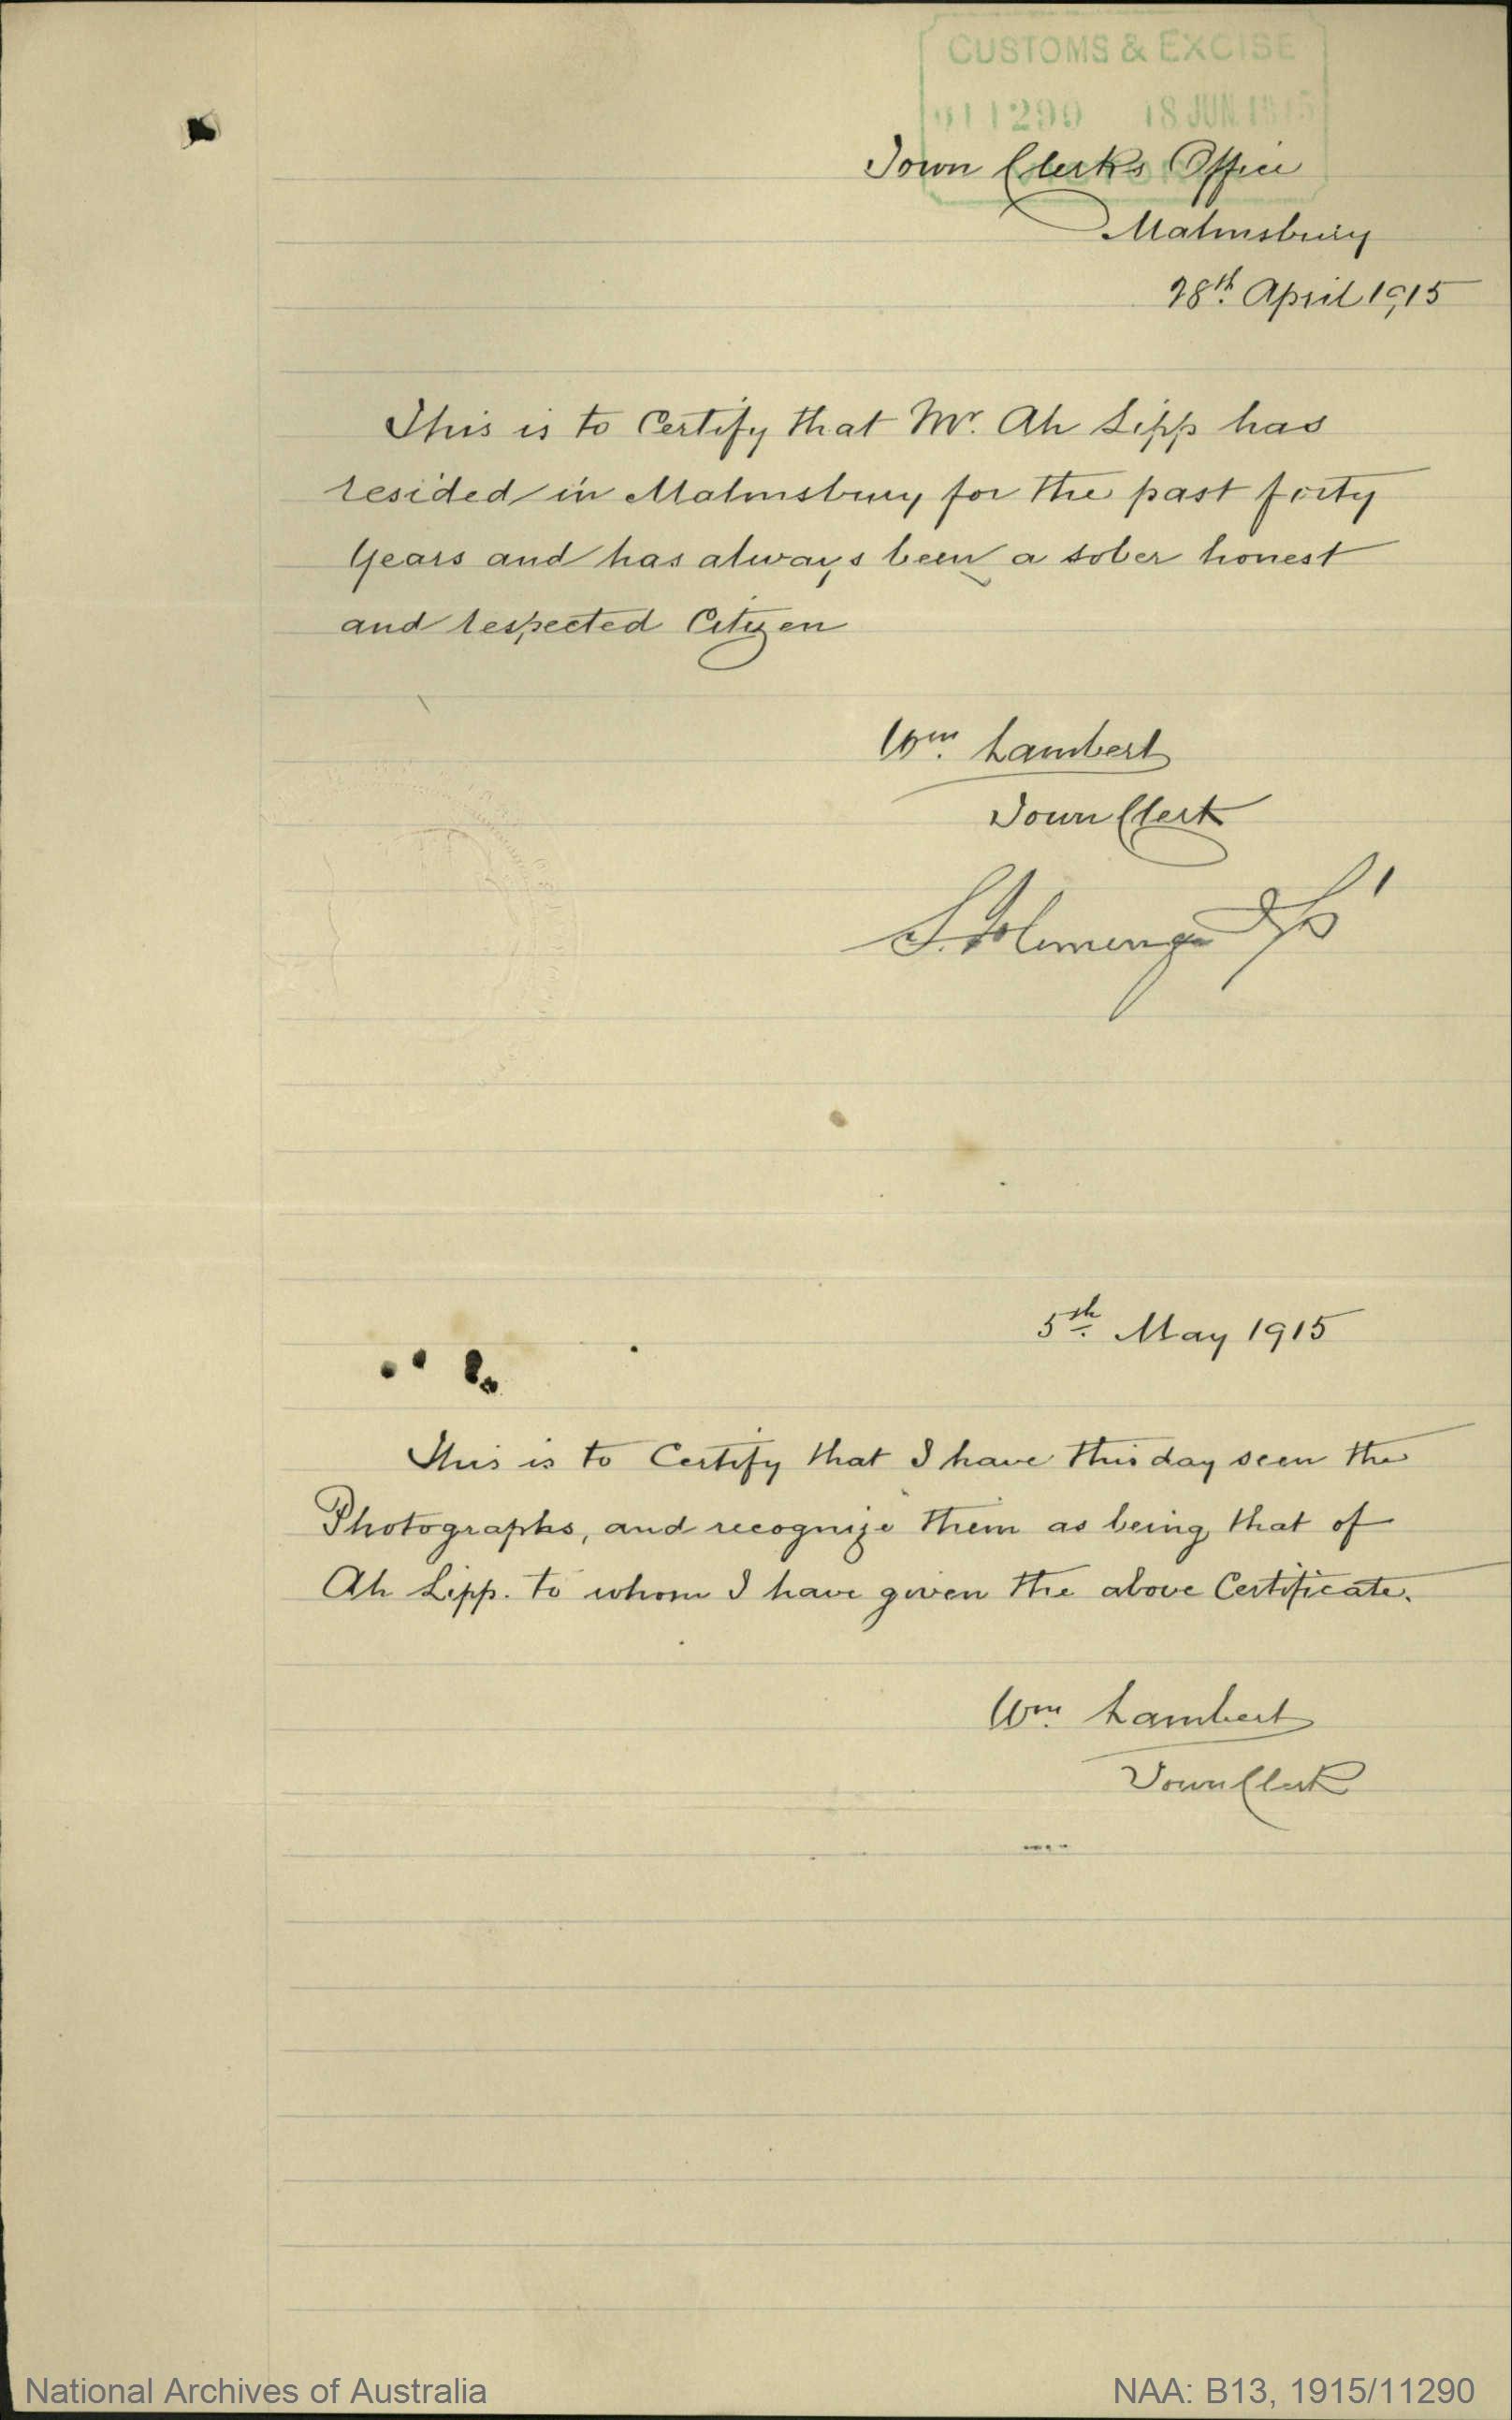 CUSTOMS & EXCISE
11290 18 JUN 1915
Town Clerks Office
Malmsbury
28th. April 1915
This is to Certify that Mr. Ah Lipp has
resided in Malmsbury for the past forty
Years and has always been a sober honest
and respected Citizen
Wm. Lambert
Town Clerk
5th. May 1915
This is to Certify that I have this day seen the
Photographs, and recognize them as being that of
Ah Lipp. to whom I have given the above Certificate.
Wm. Lambert
Town Clerk
National Archives of Australia
NAA: B13, 1915/11290